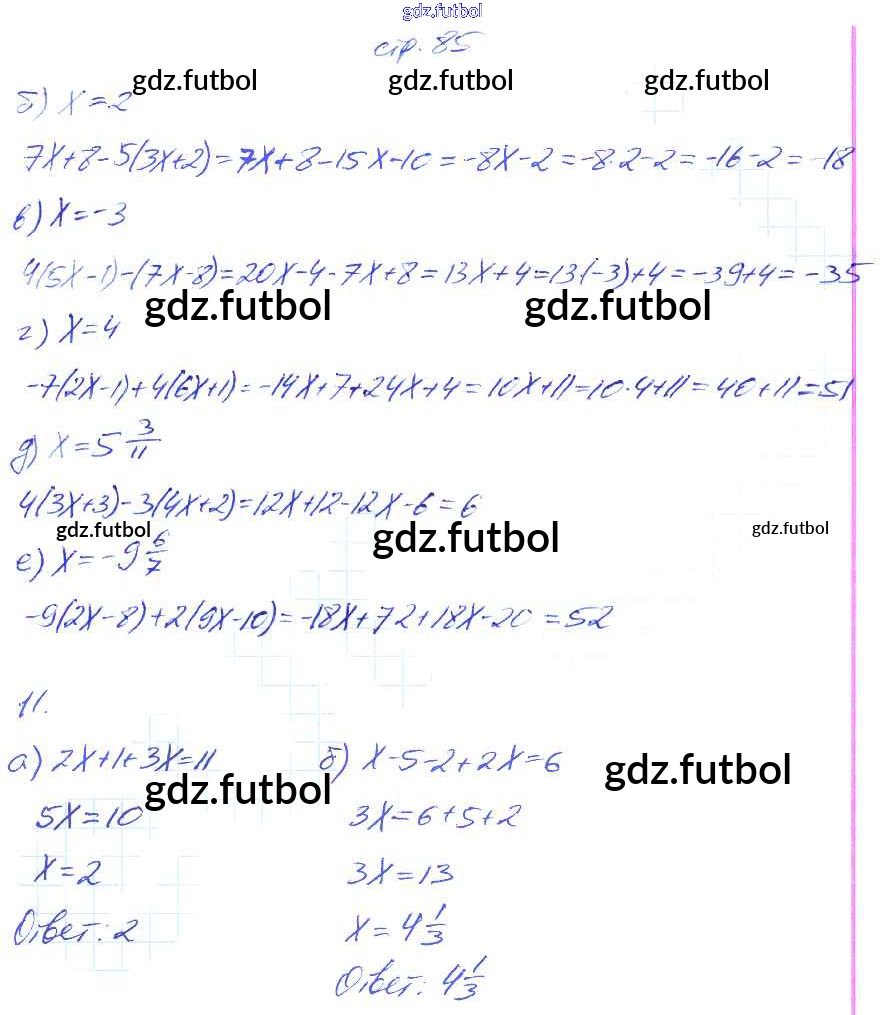 gdz.futbol
стр. 85
gdz.futbol gdz.futbol gdz.futbol
б) x = 2
7x+8-5(3x+2)=7x+8-15x-10=-8x-2=-8·2-2=-16-2=-18
в) x=-3
4(5x-1)-(7x-8)=20x-4-7x+8=13x+4=13(-3)+4=-39+4=-35
gdz.futbol gdz.futbol
г) x=4
-7(2x-1)+4(6x+1)=-14x+7+24x+4=10x+11=10·4+11=40+11=51
д) x=5 3/11
4(3x+3)-3(4x+2)=12x+12-12x-6=6
gdz.futbol gdz.futbol gdz.futbol
е) x=-9 6/7
-9(2x-8)+2(9x-10)=-18x+72+18x-20=52
11.
а) 2x+1+3x=11 б) x-5-2+2x=6
gdz.futbol gdz.futbol
5x=10 3x=6+5+2
x=2 3x=13
Ответ: 2 x=4 1/3
Ответ: 4 1/3